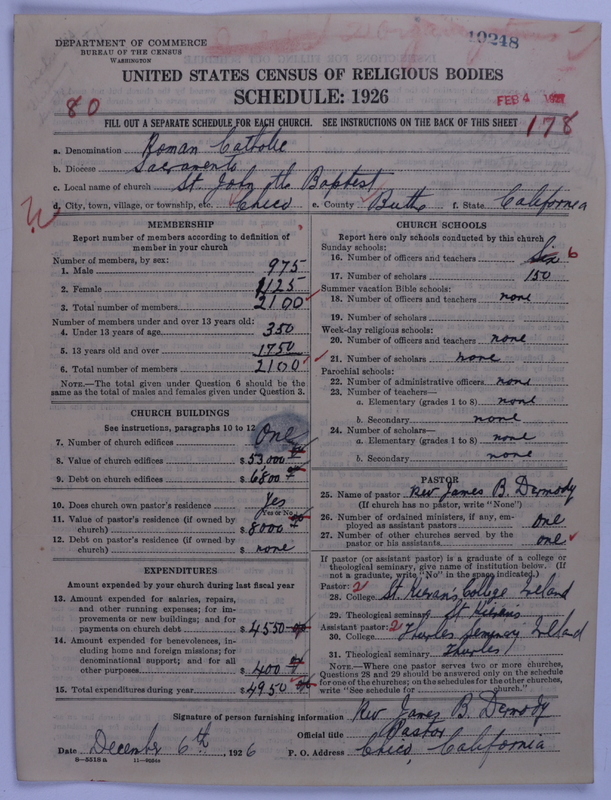 DEPARTMENT OF COMMERCE
BUREAU OF THE CENSUS
WASHINGTON
19248
UNITED STATES CENSUS OF RELIGIOUS BODIES
SCHEDULE: 1926
80
FEB 4 1927
FILL OUT A SEPARATE SCHEDULE FOR EACH CHURCH. SEE INSTRUCTIONS ON THE BACK OF THIS SHEET
178
a. Denomination Roman Catholic
b. Diocese Sacramento
c. Local name of church St. John the Baptist
d. City, town, village, or township, etc. Chico e. County Butte f. State California
MEMBERSHIP
Report number of members according to definition of member in your church
Number of members, by sex:
1. Male 975
2. Female 1125
3. Total number of members 2100
Number of members under and over 13 years old:
4. Under 13 years of age 350
5. 13 years old and over 1750
6. Total number of members 2100
NOTE.—The total given under Question 6 should be the same as the total of males and females given under Question 3.
CHURCH BUILDINGS
See instructions, paragraphs 10 to 12
7. Number of church edifices One
8. Value of church edifices $ 53,000
9. Debt on church edifices $ 6800
10. Does church own pastor's residence? Yes
Yes or No
11. Value of pastor's residence (if owned by church) $ 8000
12. Debt on pastor's residence (if owned by church) $ none
EXPENDITURES
Amount expended by your church during last fiscal year
13. Amount expended for salaries, repairs, and other running expenses; for improvements or new buildings; and for payments on church debt $ 4550
14. Amount expended for benevolences, including home and foreign missions; for denominational support; and for all other purposes $ 400
15. Total expenditures during year $ 4950
CHURCH SCHOOLS
Report here only schools conducted by this church
Sunday schools:
16. Number of officers and teachers Six 6
17. Number of scholars 150
Summer vacation Bible schools:
18. Number of officers and teachers none
19. Number of scholars
Week-day religious schools:
20. Number of officers and teachers none
21. Number of scholars none
Parochial schools:
22. Number of administrative officers none
23. Number of teachers—
a. Elementary (grades 1 to 8) none
b. Secondary none
24. Number of scholars—
a. Elementary (grades 1 to 8) none
b. Secondary none
PASTOR
25. Name of pastor Rev James B. Dermody
(If church has no pastor, write "None")
26. Number of ordained ministers, if any, employed as assistant pastors one
27. Number of other churches served by the pastor or his assistants one
If pastor (or assistant pastor) is a graduate of a college or theological seminary, give name of institution below. (If not a graduate, write "No" in the space indicated.)
Pastor: 2
28. College St. Kierans College Ireland
29. Theological seminary St Kierans
Assistant pastor: 2
30. College Thurles Seminary Ireland
31. Theological seminary Thurles
NOTE.—Where one pastor serves two or more churches, Questions 28 and 29 should be answered only on the schedule for one of the churches; on the schedules for the other churches, write "See schedule for church."
Signature of person furnishing information Rev James B. Dermody
Official title Pastor
Date December 6th, 1926 P. O. Address Chico, California
8-5518a